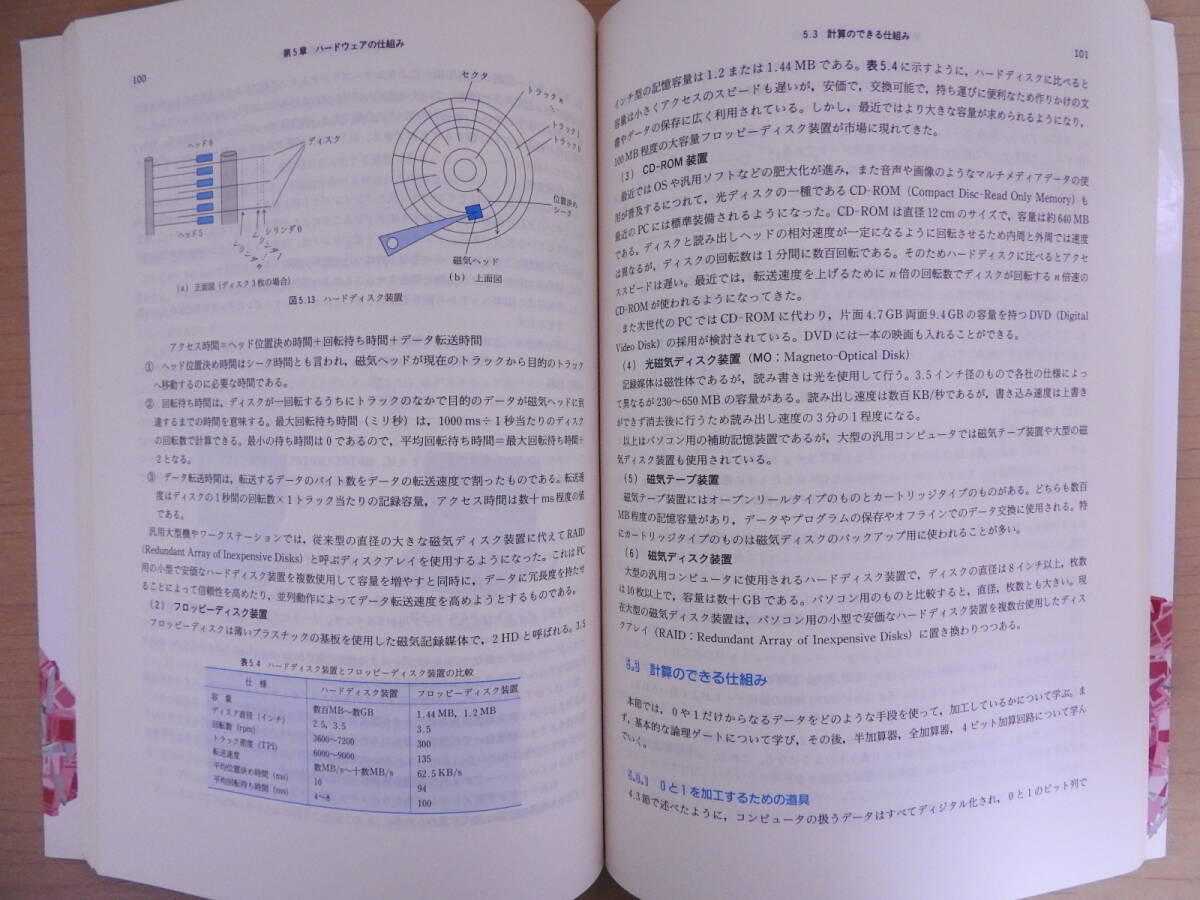 第5章 ハードウェアの仕組み
100
ヘッド0
ディスク
ヘッド5
シリンダ0
シリンダ1
シリンダn
(a) 正面図(ディスク3枚の場合)
セクタ
トラックn
トラック1
トラック0
位置決め
シーク
磁気ヘッド
(b) 上面図
図5.13 ハードディスク装置
アクセス時間=ヘッド位置決め時間+回転待ち時間+データ転送時間
① ヘッド位置決め時間はシーク時間とも言われ,磁気ヘッドが現在のトラックから目的のトラック
へ移動するのに必要な時間である。
② 回転待ち時間は,ディスクが一回転するうちにトラックのなかで目的のデータが磁気ヘッドに到
達するまでの時間を意味する。最大回転待ち時間(ミリ秒)は,1000 ms÷1秒当たりのディスク
の回転数で計算できる。最小の待ち時間は0であるので,平均回転待ち時間=最大回転待ち時間÷
2となる。
③ データ転送時間は,転送するデータのバイト数をデータの転送速度で割ったものである。転送速
度はディスクの1秒間の回転数×1トラック当たりの記録容量,アクセス時間は数十ms程度の値
である。
汎用大型機やワークステーションでは,従来型の直径の大きな磁気ディスク装置に代えてRAID
(Redundant Array of Inexpensive Disks)と呼ぶディスクアレイを使用するようになった。これはPC
用の小型で安価なハードディスク装置を複数使用して容量を増やすと同時に,データに冗長度を持たせ
ることによって信頼性を高めたり,並列動作によってデータ転送速度を高めようとするものである。
(2) フロッピーディスク装置
フロッピーディスクは薄いプラスチックの基板を使用した磁気記録媒体で,2HDと呼ばれる。3.5
表5.4 ハードディスク装置とフロッピーディスク装置の比較
仕様 ハードディスク装置 フロッピーディスク装置
容量 数百MB〜数GB 1.44 MB, 1.2 MB
ディスク直径(インチ) 2.5, 3.5 3.5
回転数(rpm) 3600〜7200 300
トラック密度(TPI) 6000〜9000 135
転送速度 数MB/s〜十数MB/s 62.5 KB/s
平均位置決め時間(ms) 10 94
平均回転待ち時間(ms) 4〜8 100
5.3 計算のできる仕組み
101
インチ型の記憶容量は1.2または1.44 MBである。表5.4に示すように,ハードディスクに比べると
容量は小さくアクセスのスピードも遅いが,安価で,交換可能で,持ち運びに便利なため作りかけの文
書やデータの保存に広く利用されている。しかし,最近ではより大きな容量が求められるようになり,
100 MB程度の大容量フロッピーディスク装置が市場に現れてきた。
(3) CD-ROM装置
最近ではOSや汎用ソフトなどの肥大化が進み,また音声や画像のようなマルチメディアデータの使
用が普及するにつれて,光ディスクの一種であるCD-ROM(Compact Disc-Read Only Memory)も
最近のPCには標準装備されるようになった。CD-ROMは直径12 cmのサイズで,容量は約640 MB
である。ディスクと読み出しヘッドの相対速度が一定になるように回転させるため内周と外周では速度
は異なるが,ディスクの回転数は1分間に数百回転である。そのためハードディスクに比べるとアクセ
ススピードは遅い。最近では,転送速度を上げるためにn倍の回転数でディスクが回転するn倍速の
CD-ROMが使われるようになってきた。
また次世代のPCではCD-ROMに代わり,片面4.7 GB両面9.4 GBの容量を持つDVD(Digital
Video Disk)の採用が検討されている。DVDには一本の映画も入れることができる。
(4) 光磁気ディスク装置(MO:Magneto-Optical Disk)
記録媒体は磁性体であるが,読み書きは光を使用して行う。3.5インチ径のもので各社の仕様によっ
て異なるが230〜650 MBの容量がある。読み出し速度は数百KB/秒であるが,書き込み速度は上書き
ができず消去後に行うため読み出し速度の3分の1程度になる。
以上はパソコン用の補助記憶装置であるが,大型の汎用コンピュータでは磁気テープ装置や大型の磁
気ディスク装置も使用されている。
(5) 磁気テープ装置
磁気テープ装置にはオープンリールタイプのものとカートリッジタイプのものがある。どちらも数百
MB程度の記憶容量があり,データやプログラムの保存やオフラインでのデータ交換に使用される。特
にカートリッジタイプのものは磁気ディスクのバックアップ用に使われることが多い。
(6) 磁気ディスク装置
大型の汎用コンピュータに使用されるハードディスク装置で,ディスクの直径は8インチ以上,枚数
は10枚以上で,容量は数十GBである。パソコン用のものと比較すると,直径,枚数とも大きい。現
在大型の磁気ディスク装置は,パソコン用の小型で安価なハードディスク装置を複数台使用したディス
クアレイ(RAID:Redundant Array of Inexpensive Disks)に置き換わりつつある。
5.3 計算のできる仕組み
本節では,0や1だけからなるデータをどのような手段を使って,加工しているかについて学ぶ。ま
ず,基本的な論理ゲートについて学び,その後,半加算器,全加算器,4ビット加算回路について学ん
でいく。
5.3.1 0と1を加工するための道具
4.3節で述べたように,コンピュータの扱うデータはすべてディジタル化され,0と1のビット列で